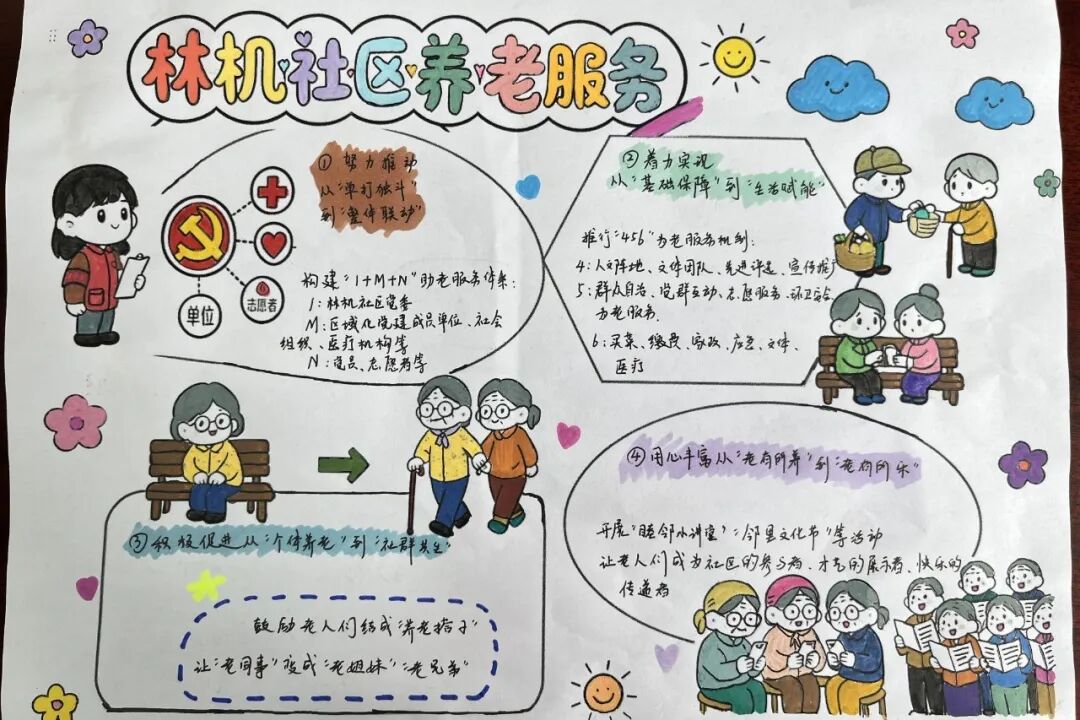 林机社区养老服务
①努力推动
从“单打独斗”
到“整体联动”
单位
志愿者
构建“1+M+N”助老服务体系:
1:林机社区党委
M:区域化党建成员单位、社会
组织、医疗机构等
N:党员、志愿者等
②着力实现
从“基础保障”到“生活赋能”
推行“456”为老服务机制:
4:人文阵地、文体团队、先进评选、宣传推广
5:群众自治、党群互动、志愿服务、环卫安全、
为老服务.
6:买菜、缴费、家政、应急、文体、
医疗
③积极促进从“个体养老”到“社群共生”
鼓励老人们结成“养老搭子”
让“老同事”变成“老姐妹”“老兄弟”
④用心丰富从“老有所养”到“老有所乐”
开展“睦邻小讲堂”“邻里文化节”等活动
让老人们成为社区的参与者、才艺的展示者、快乐的
传递者